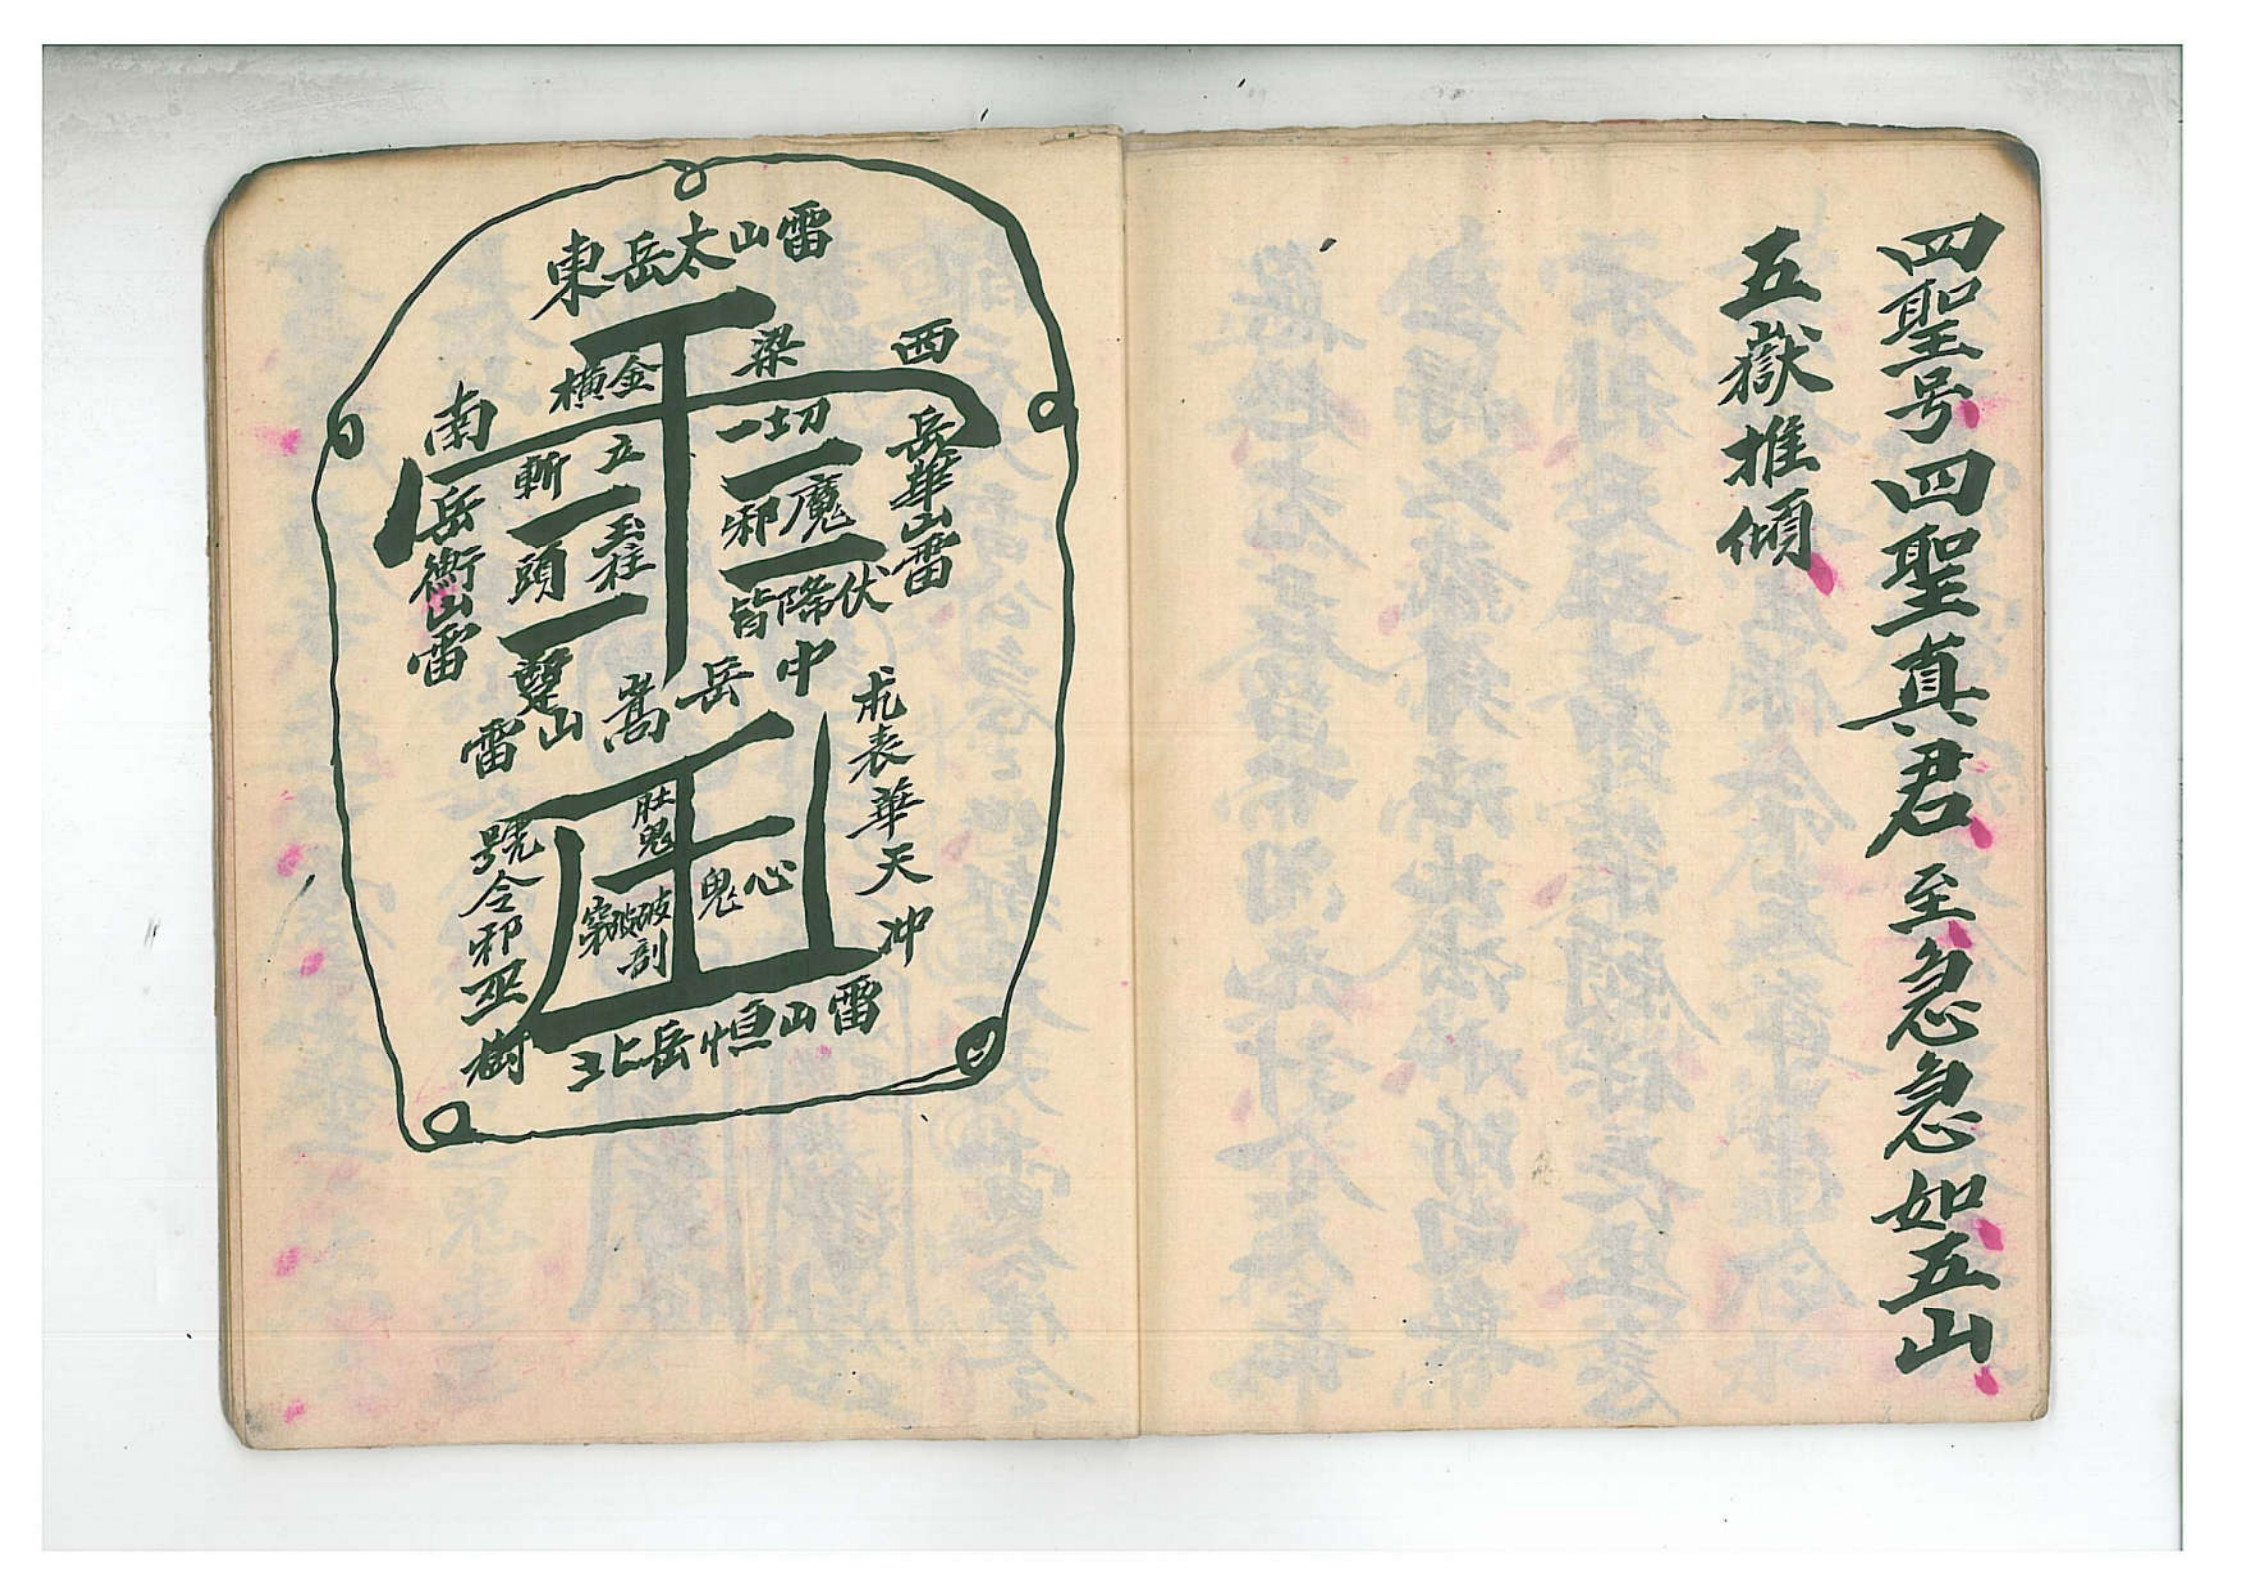 四聖号四聖真君至急急如五山
五嶽推傾
東岳太山雷
西岳華山雷
南岳衡山雷
中岳嵩山雷
北岳恒山雷
横金梁
立玉柱
斬頭
一切
邪魔
皆降伏
表華天冲
號令邪巫樹
肚鬼
心鬼
破剖